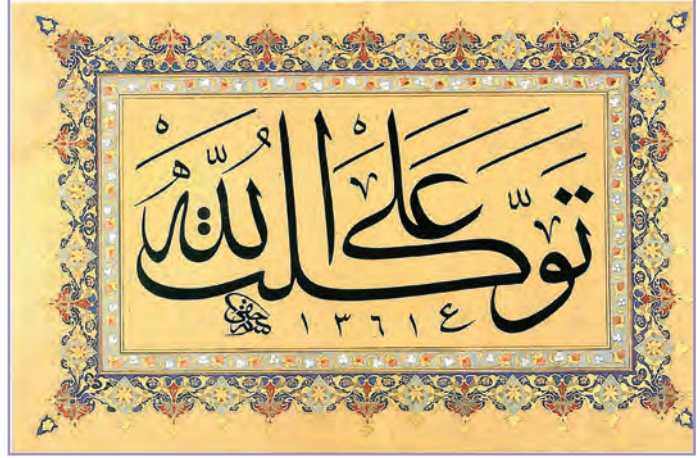 توكلت على الله
ع ١٣٦١